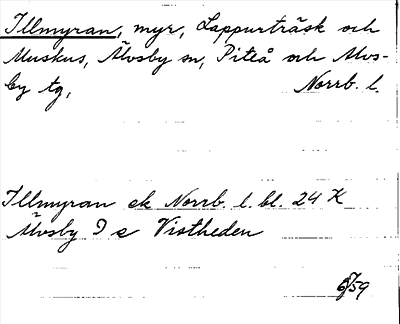 Illmyran, myr, Lappurträsk och
Muskus, Älvsby sn, Piteå och Älvs-
by tg, Norrb. l.
Illmyran ek Norrb. l. bl. 24 K
Älvsby 9 e Vistheden
6/59